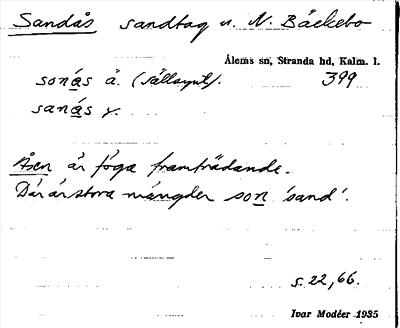 Sandås sandtag n. N. Bäckebo
Ålems sn, Stranda hd, Kalm. l.
sonás ä. (sällsynt). 399
sanás y.
Åsen är föga framträdande.
Där är stora mängder son 'sand'.
s. 22, 66.
Ivar Modéer 1935